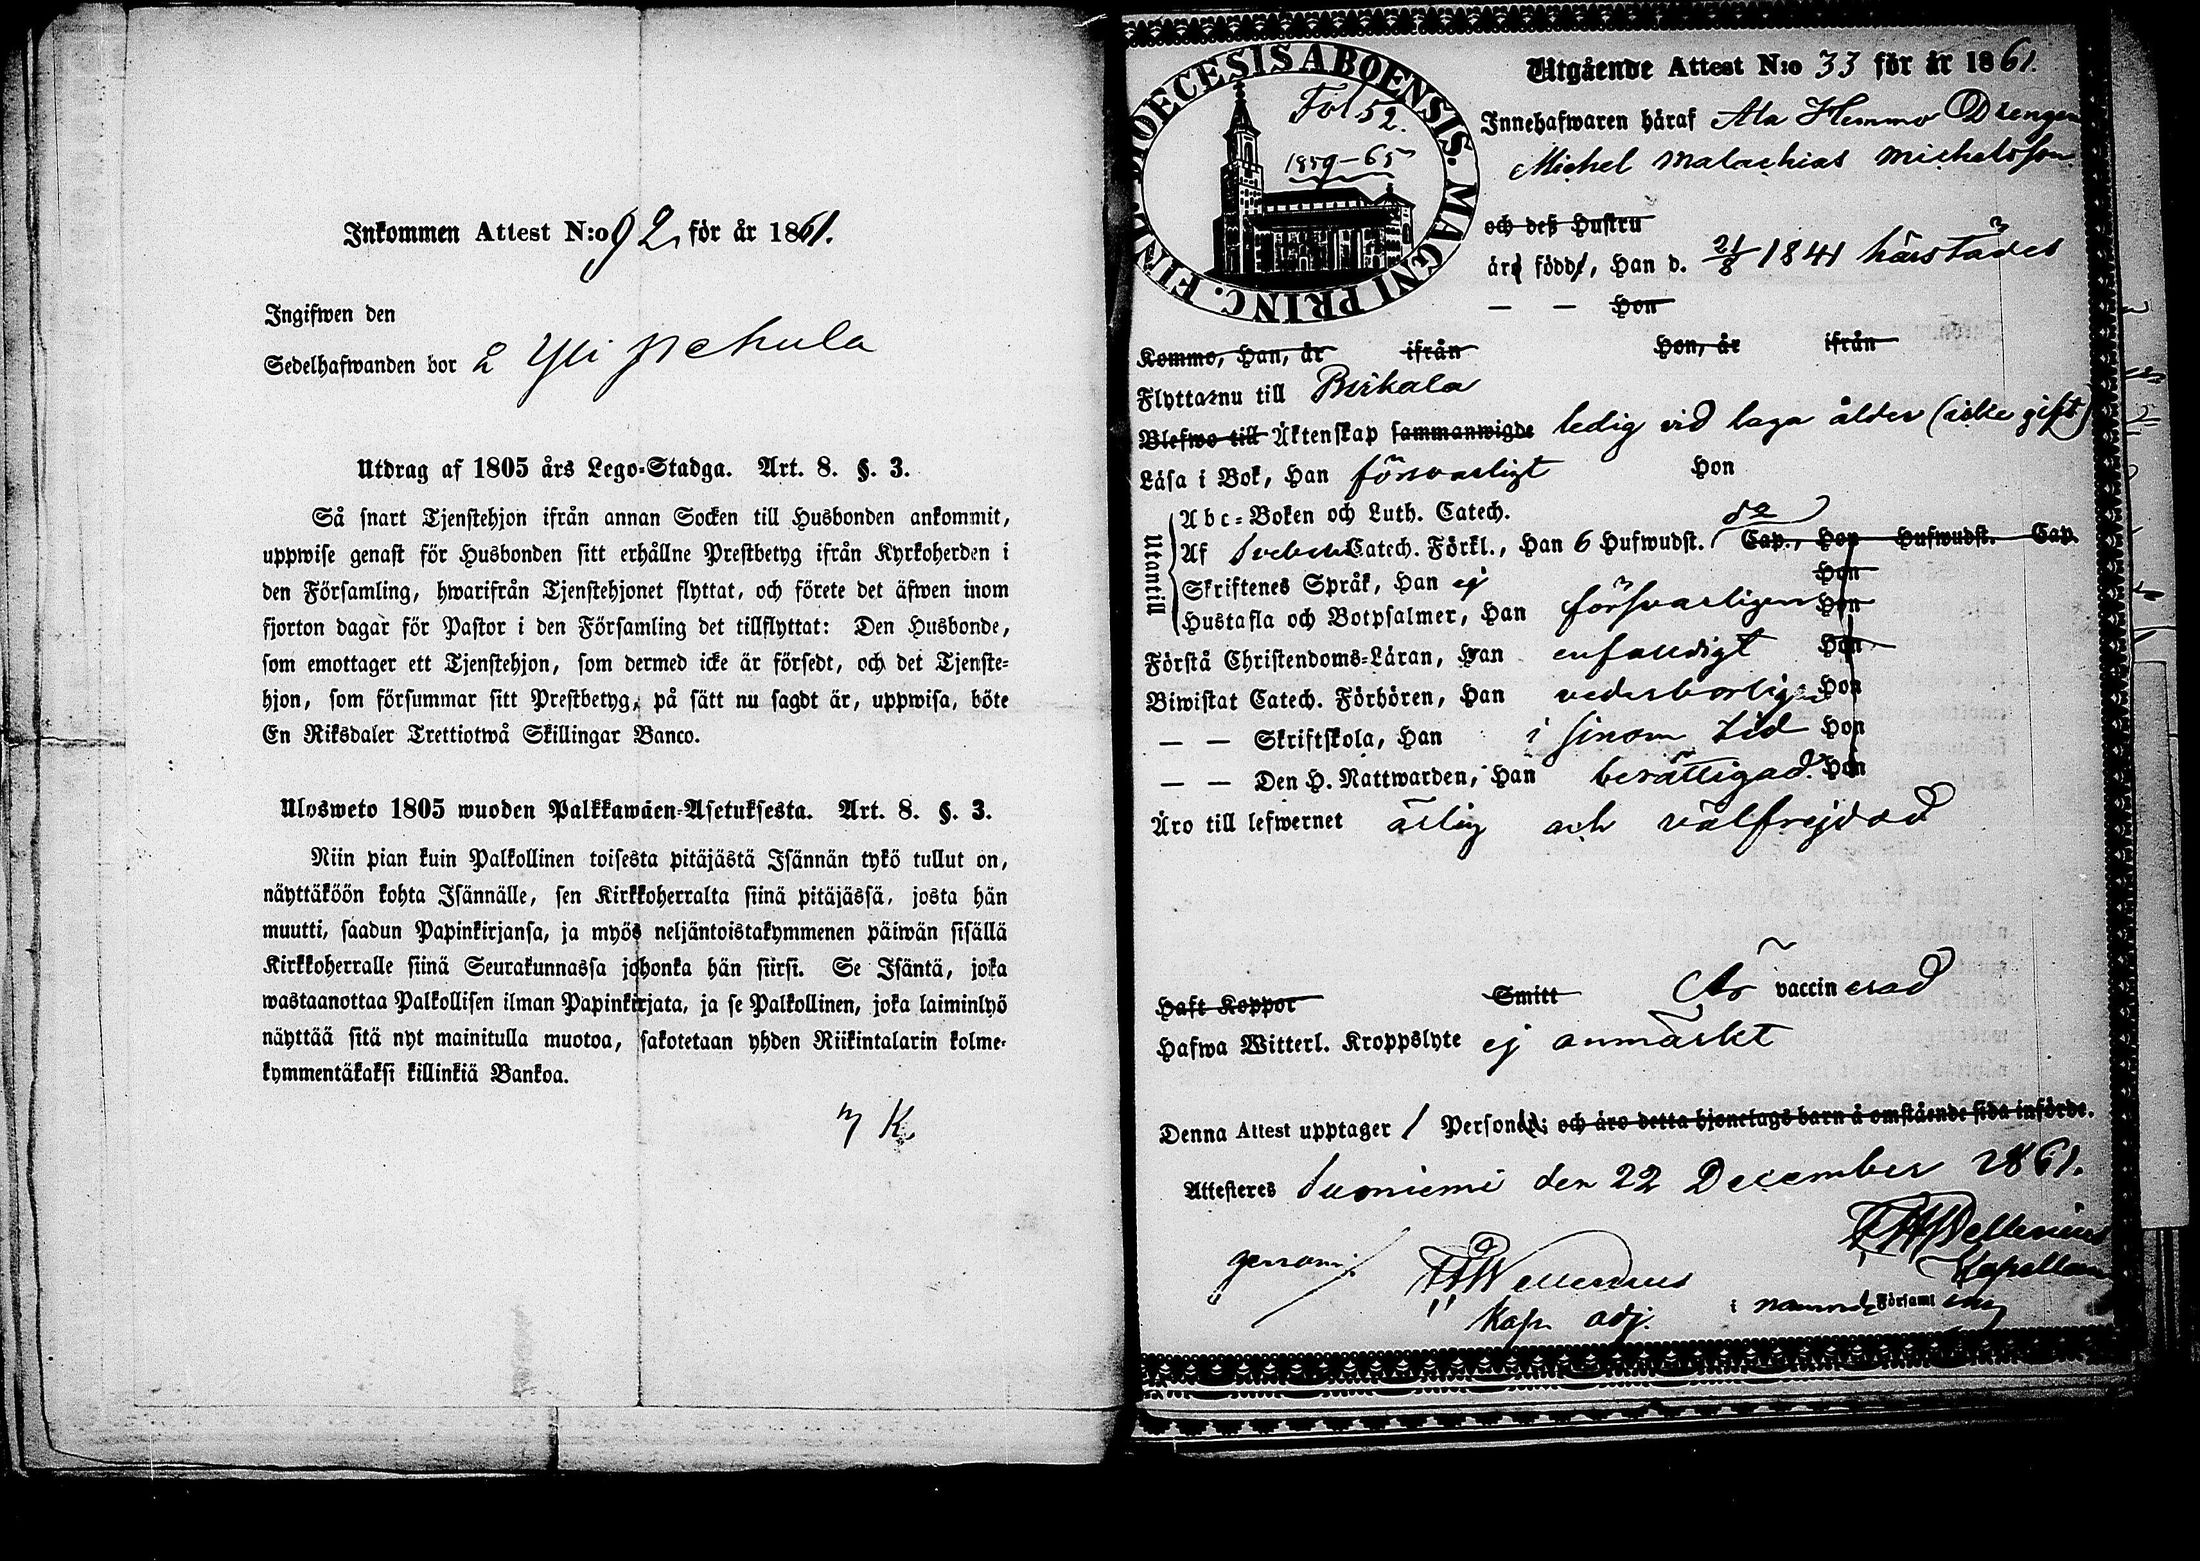 Inkommen Attest N:o 92 för år 1861.
Ingifwen den
Sedelhafwanden bor å Yli pehula
Utdrag af 1805 års Lego-Stadga. Art. 8. §. 3.
Så snart Tjenstehjon ifrån annan Socken till Husbonden ankommit,
uppwise genast för Husbonden sitt erhållne Prestbetyg ifrån Kyrkoherden i
den Församling, hwarifrån Tjenstehjonet flyttat, och förete det äfwen inom
fjorton dagar för Pastor i den Församling det tillflyttat: Den Husbonde,
som emottager ett Tjenstehjon, som dermed icke är försedt, och det Tjenste-
hjon, som försummar sitt Prestbetyg, på sätt nu sagdt är, uppwisa, böte
En Riksdaler Trettiotwå Skillingar Banco.
Ulosweto 1805 wuoden Palkkawäen-Asetuksesta. Art. 8. §. 3.
Niin pian kuin Palkollinen toisesta pitäjästä Isännän tykö tullut on,
näyttäköön kohta Isännälle, sen Kirkkoherralta siinä pitäjässä, josta hän
muutti, saadun Papinkirjansa, ja myös neljäntoistakymmenen päiwän sisällä
Kirkkoherralle siinä Seurakunnassa johonka hän siirsi. Se Isäntä, joka
wastaanottaa Palkollisen ilman Papinkirjata, ja se Palkollinen, joka laiminlyö
näyttää sitä nyt mainitulla muotoa, sakotetaan yhden Riikintalarin kolme-
kymmentäkaksi killinkiä Bankoa.
DIOECESIS ABOENSIS. MAGNI PRINC. FINL.
Fol 52.
1859-65
Utgående Attest N:o 33 för år 1861.
Innehafwaren häraf Ala Hemmo Drengen
Michel Malachias Michelsson
och deß Hustru
äro född, Han d. 21/8 1841 härstädes
— — Hon
Kommo, Han, år ifrån Hon, år ifrån
Flytta nu till Birkala
Blefwo till Äktenskap sammanwigde ledig vid laga ålder (icke gift)
Läsa i Bok, Han försvarligt Hon
Utantill
Abc-Boken och Luth. Catech.
Af Svebel. Catech. Förkl., Han 6 Hufwudst. Cap., Hon Hufwudst. Cap.
Skriftenes Språk, Han ej Hon
Hustafla och Botpsalmer, Han försvarligen Hon
Förstå Christendoms-Läran, Han enfaldigt Hon
Biwistat Catech. Förhören, Han vederbörligen Hon
— — Skriftskola, Han i sinom tid Hon
— — Den H. Nattwarden, Han berättigad. Hon
Äro till lefwernet ärlig och välfrejdad
Haft Koppor Smitt Är vaccinerad
Hafwa Witterl. Kroppslyte ej anmärkt
Denna Attest upptager 1 Person; och äro detta hjonelags barn å omstående sida införde.
Attesteres Suoniemi den 22 December 1861.
Kapellan
genom
Kap. adj.
i nämnde Församling